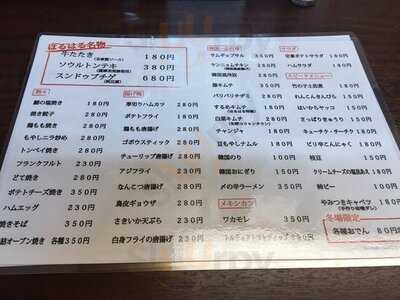 はるはる名物
牛たたき 180円
ソウルトンテキ 380円
スンドゥブチゲ 680円
鯖の塩焼き 180円
焼き餃子 280円
鶏もも焼き 280円
もやしニラ炒め 280円
トンペイ焼き 280円
フランクフルト 230円
どて焼き 280円
ポテトチーズ焼き 350円
ハムエッグ 230円
焼きそば 350円
オープン焼き 各種350円
揚げ物
厚切りハムカツ 280円
ポテトフライ 180円
鶏もも唐揚げ 280円
ゴボウスティック 280円
チューリップ唐揚げ 280円
アジフライ 230円
なんこつ唐揚げ 280円
鳥皮ギョウザ 280円
さきいか天ぷら 230円
白身フライの唐揚げ 230円
サムギョプサル 350円
ヤンニョムチキン 280円
韓国風冷奴
豚キムチ 350円
バリバリチヂミ 280円
するめキムチ 180円
白菜キムチ 280円
チャンジャ 180円
豆もやしナムル 180円
韓国のり 180円
韓国おにぎり 150円
〆の辛ラーメン 350円
メキシカン
ワカモレ 350円
サラダ
定番ポテトサラダ 280円
ハムサラダ 180円
スピードメニュー
竹の子土佐煮 180円
れんこんきんぴら 180円
はいからキャッコ 150円
さっぱりきゅうり 180円
キューチク・チーチク 180円
ピリ辛こんにゃく 180円
枝豆 150円
クリームチーズの塩昆布あえ 180円
柿ピー 100円
やみつきキャベツ 180円
冬場限定
各種おでん 80円